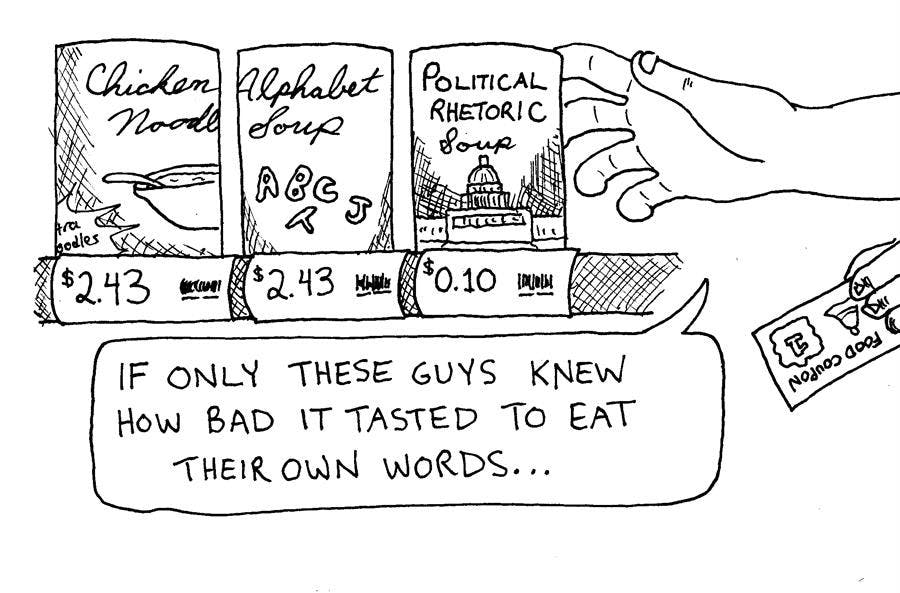 Chicken
Noodl
tra
oodles
$2.43
Alphabet
Soup
A B C
T J
$2.43
POLITICAL
RHETORIC
Soup
$0.10
1
FOOD COUPON
IF ONLY THESE GUYS KNEW
HOW BAD IT TASTED TO EAT
THEIR OWN WORDS...